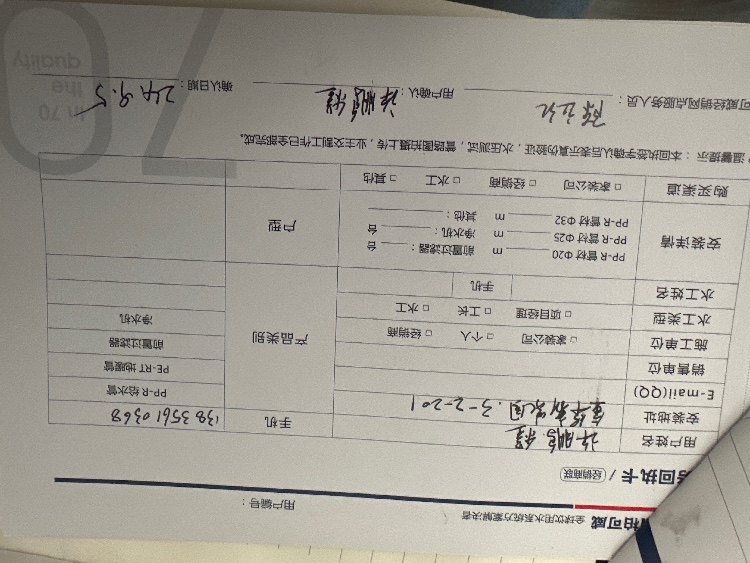 柏可威 全球饮用水系统方案解决者
用户编号：
回执卡 / 经销商联
用户姓名 许鹏程 手机 138 3561 0368
安装地址 3-2-201
E-mail(QQ)
销售单位
施工单位 □ 家装公司 □ 个人 □ 经销商
水工类型 □ 项目经理 □ 工长 □ 水工
水工姓名 手机
产品类别
PP-R 给水管
PE-RT 地暖管
前置过滤器
净水机
安装详情
PP-R 管材 Φ20 m 前置过滤器： 台
PP-R 管材 Φ25 m 净水机： 台
PP-R 管材 Φ32 m 其他：
户型
购买渠道 □ 家装公司 □ 经销商 □ 水工 □ 其他
温馨提示：本回执签字确认后表示真伪验证，水压测试，管路图拍摄上传，业主交割工作已全部完成。
可威经销网点服务人员： 用户确认：许鹏程 确认日期： 9.5
In 70
the
quality
70